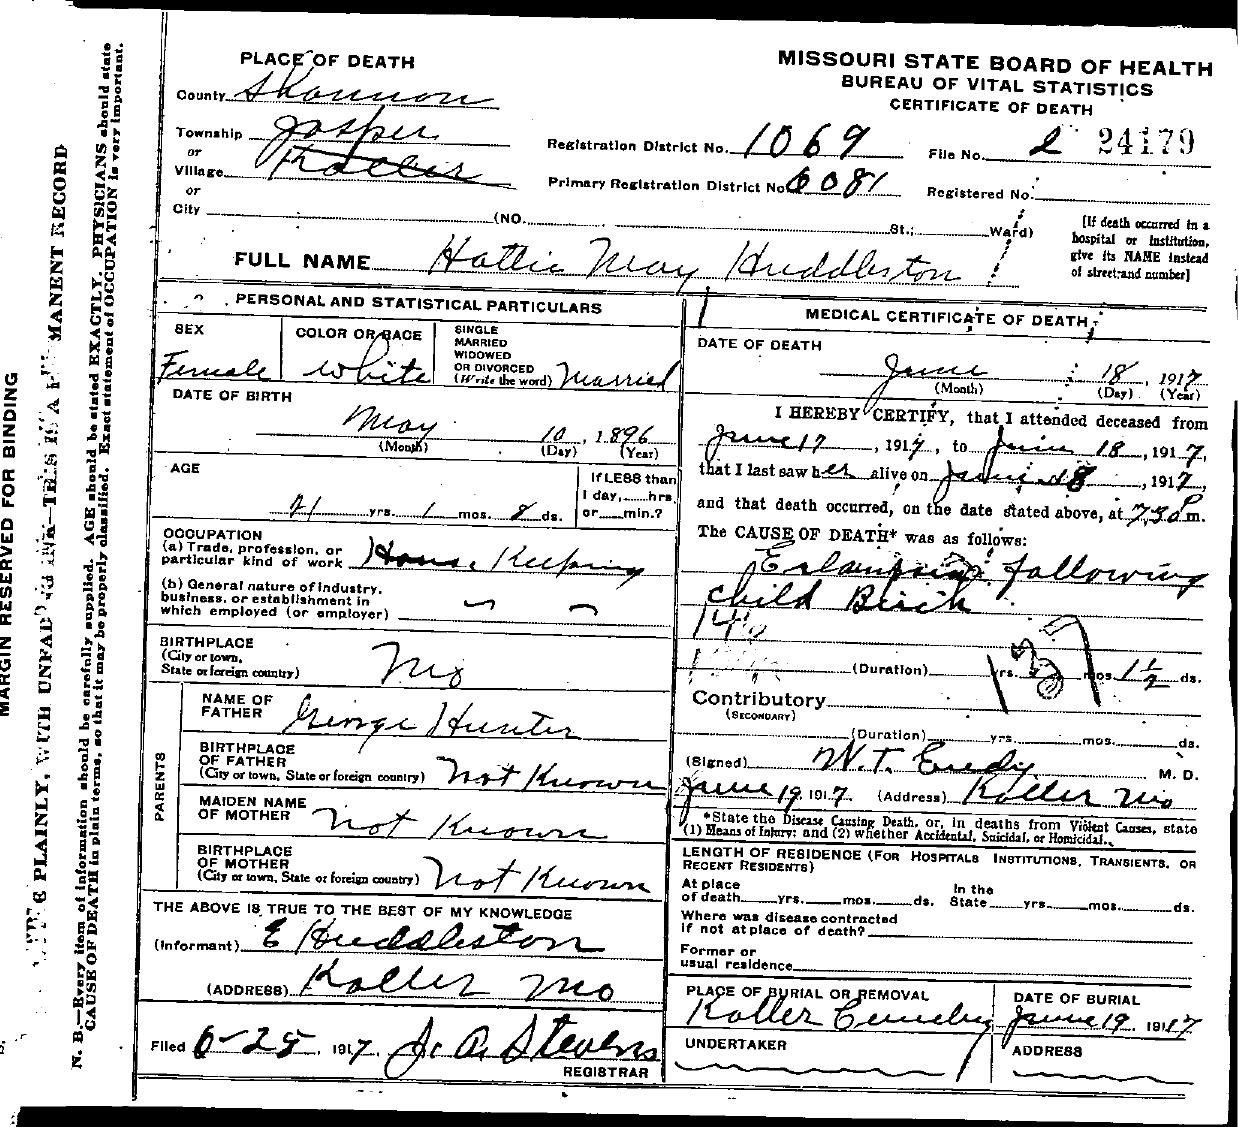 MISSOURI STATE BOARD OF HEALTH
BUREAU OF VITAL STATISTICS
CERTIFICATE OF DEATH
PLACE OF DEATH
County Shannon
Township Jasper
or
Village
or
City (NO. St.; Ward)
Registration District No. 1069 File No. 24179
Primary Registration District No. 6081 Registered No.
[If death occurred in a
hospital or institution,
give its NAME instead
of street and number]
FULL NAME Hattie May Huddleston
PERSONAL AND STATISTICAL PARTICULARS
SEX
Female
COLOR OR RACE
white
SINGLE
MARRIED
WIDOWED
OR DIVORCED
(Write the word) Married
DATE OF BIRTH
May 10, 1896
(Month) (Day) (Year)
AGE
21 yrs. 1 mos. 8 ds.
If LESS than
1 day, hrs.
or min.?
OCCUPATION
(a) Trade, profession, or
particular kind of work House Keeping
(b) General nature of industry,
business, or establishment in
which employed (or employer)
BIRTHPLACE
(City or town,
State or foreign country) Mo
PARENTS
NAME OF
FATHER George Hunter
BIRTHPLACE
OF FATHER
(City or town, State or foreign country) Not Known
MAIDEN NAME
OF MOTHER Not Known
BIRTHPLACE
OF MOTHER
(City or town, State or foreign country) Not Known
THE ABOVE IS TRUE TO THE BEST OF MY KNOWLEDGE
(Informant) E Huddleston
(ADDRESS) Koller Mo
Filed 6-25, 1917. J. A. Stevens
REGISTRAR
MEDICAL CERTIFICATE OF DEATH
DATE OF DEATH
June 18, 1917
(Month) (Day) (Year)
I HEREBY CERTIFY, that I attended deceased from
June 17, 1917, to June 18, 1917,
that I last saw her alive on June 18, 1917,
and that death occurred, on the date stated above, at 7 30 P m.
The CAUSE OF DEATH* was as follows:
following
child Birth
(Duration) yrs. mos. 1 1/2 ds.
Contributory
(SECONDARY)
(Duration) yrs. mos. ds.
(Signed) W. T. Eudy M. D.
June 19, 1917. (Address) Koller Mo
*State the Disease Causing Death, or, in deaths from Violent Causes, state
(1) Means of Injury; and (2) whether Accidental, Suicidal, or Homicidal.
LENGTH OF RESIDENCE (FOR HOSPITALS INSTITUTIONS, TRANSIENTS, OR
RECENT RESIDENTS)
At place
of death yrs. mos. ds.
In the
State yrs. mos. ds.
Where was disease contracted
if not at place of death?
Former or
usual residence
PLACE OF BURIAL OR REMOVAL
Koller Cemetery
DATE OF BURIAL
June 19, 1917
UNDERTAKER
ADDRESS
MARGIN RESERVED FOR BINDING
PLAINLY, WITH UNFADING INK—THIS IS A PERMANENT RECORD
N. B.—Every item of information should be carefully supplied. AGE should be stated EXACTLY. PHYSICIANS should state
CAUSE OF DEATH in plain terms, so that it may be properly classified. Exact statement of OCCUPATION is very important.